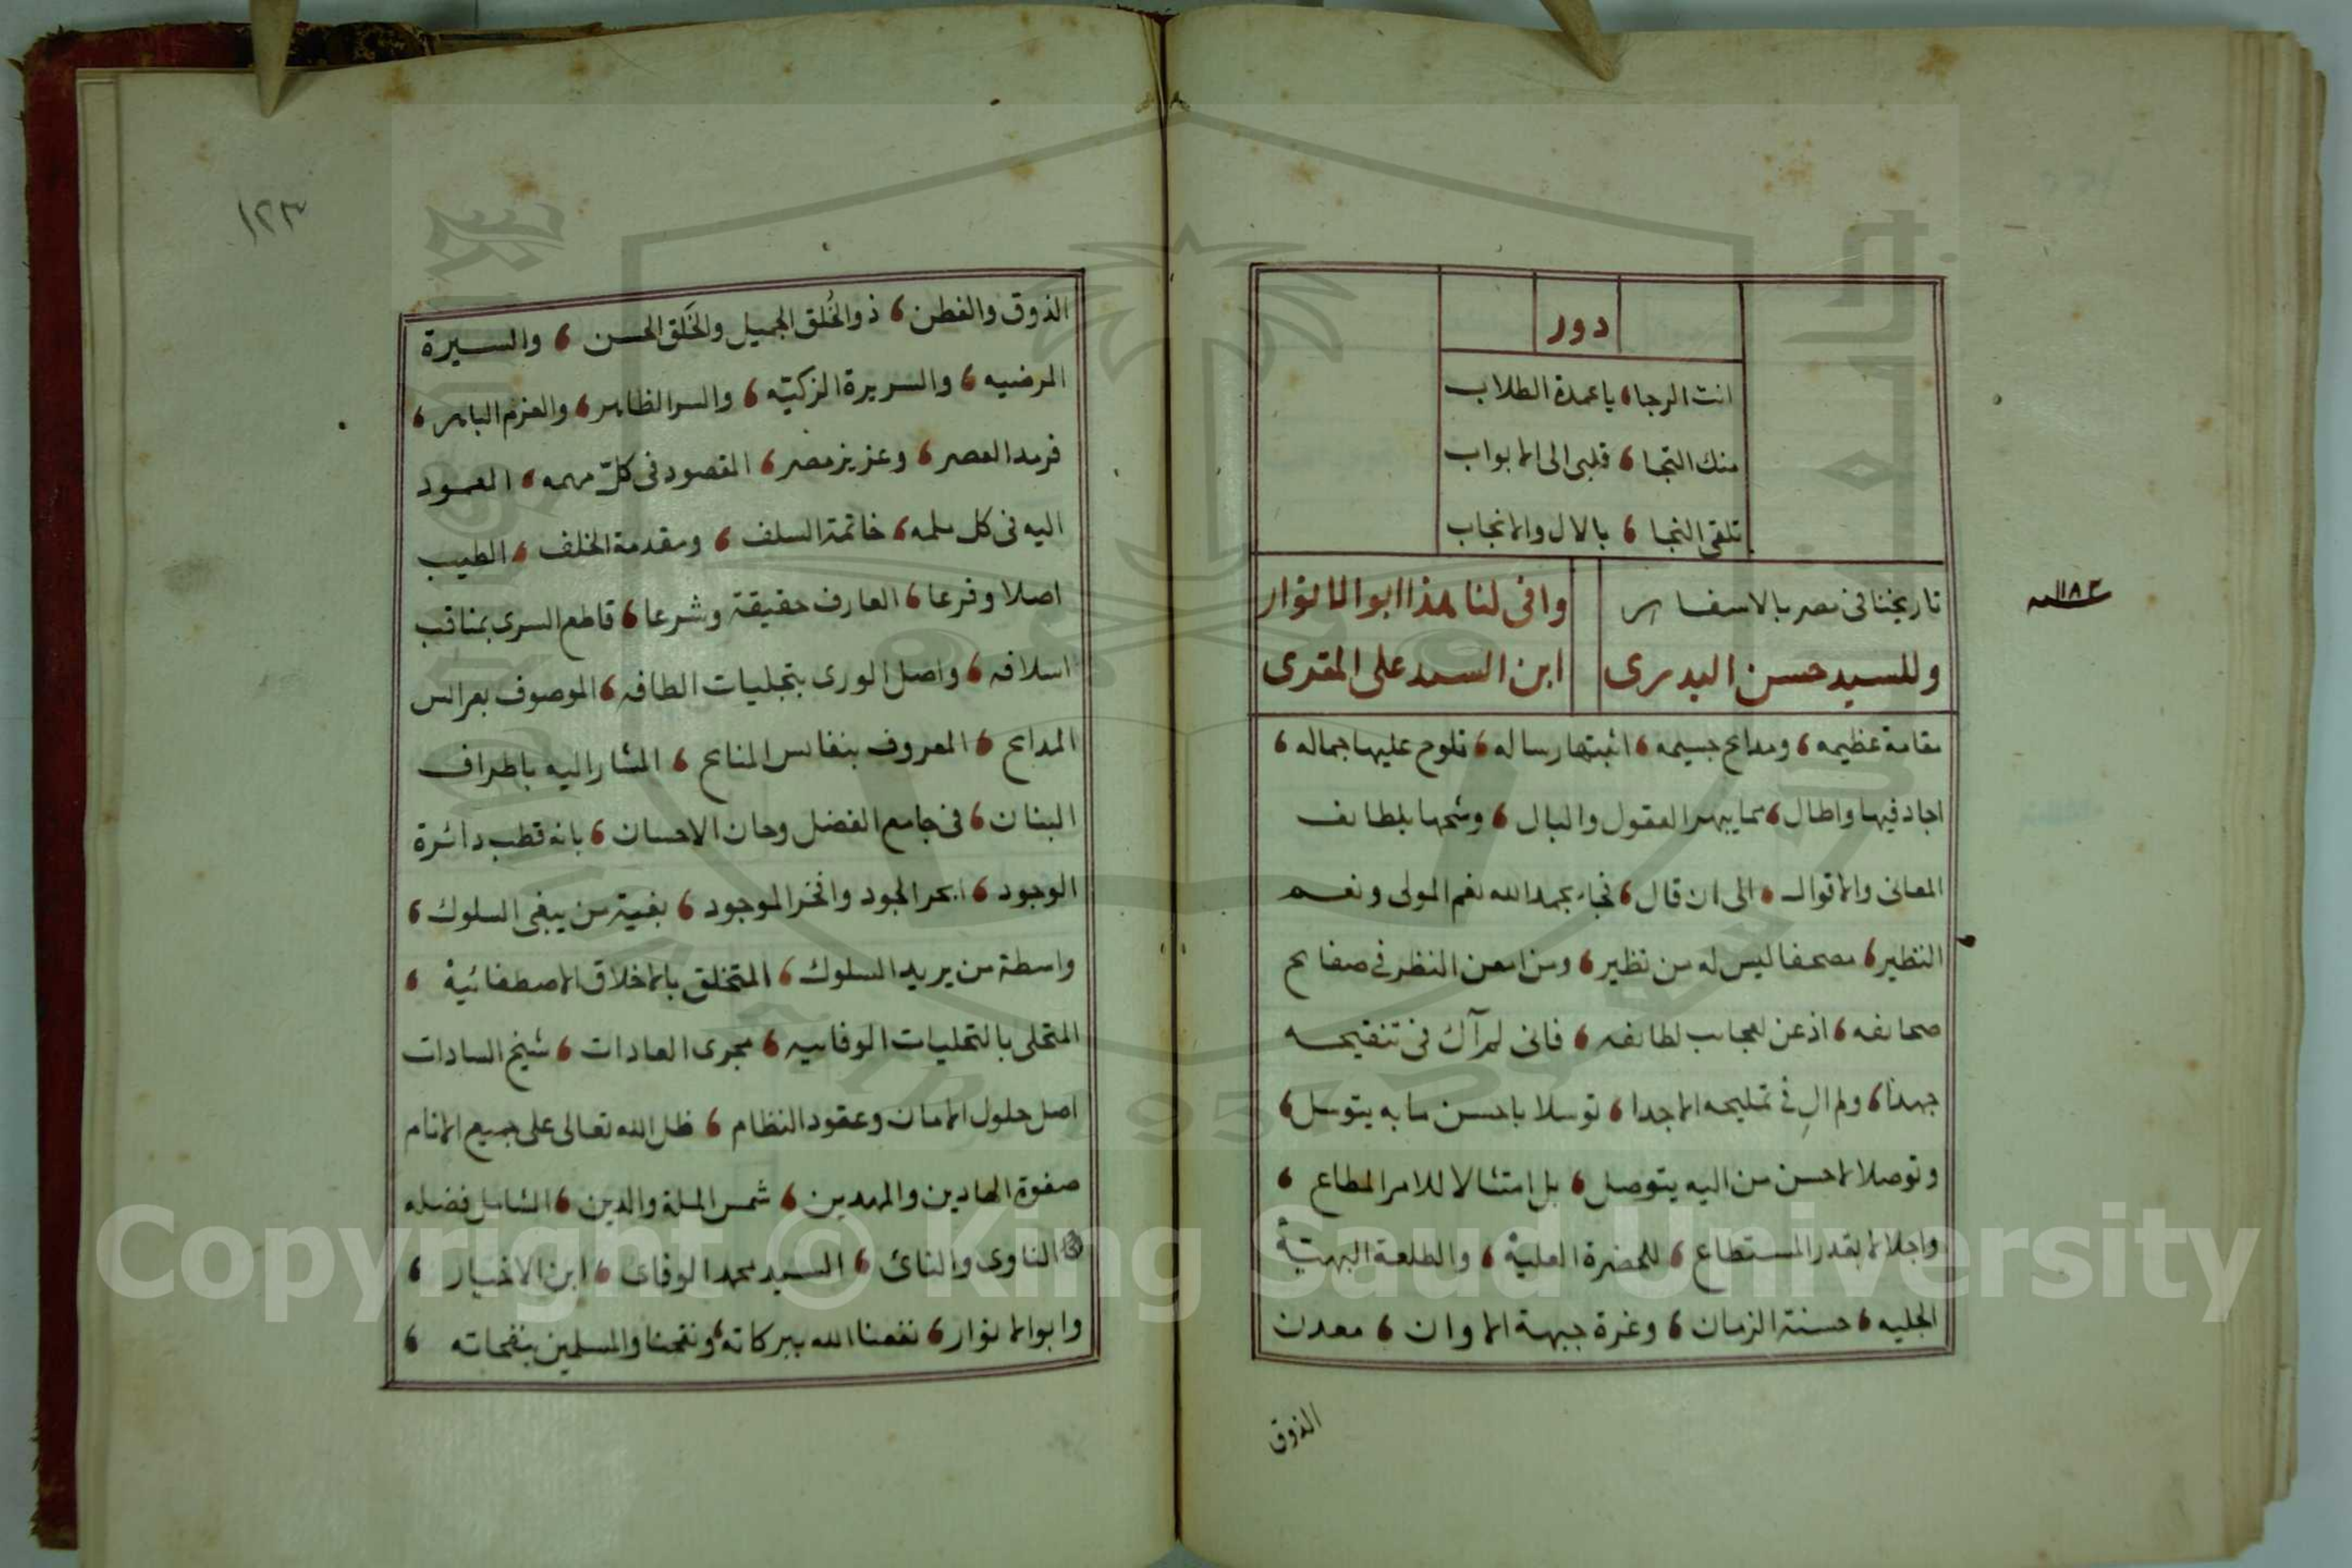 دور
انت الرجا، يا عمدة الطلاب
منك التجا، قلبى الى الابواب
تلقى النجا، بالال والانجاب
تاريخنا فى مصر بالاسفار وافى لنا هذا ابوالانوار
١١٨٣ سنه
وللسيد حسن البدرى ابن السيد على المقرى
مقامة عظيمه، ومدائح جسيمه، اثبتها رساله، تلوح عليها جماله،
اجاد فيها واطال، مما يبهر العقول والبال، وشحها بلطائف
المعانى والاقوال، الى ان قال، فجاء بحمد الله نعم المولى ونعم
النظير، مصحفا ليس له من نظير، ومن امعن النظر فى صفايح
صحائفه، اذعن لعجائب لطائفه، فانى لم آك فى تنقيحه
جهدا، ولم ال فى تمليحه الا جدا، توسلا باحسن ما به يتوسل،
وتوصلا لاحسن من اليه يتوصل، بل امتثالا للامر المطاع،
واجلالا بقدر المستطاع، للحضرة العلية، والطلعة البهية
الجليه، حسنة الزمان، وغرة جبهة الاوان، معدن
الذوق
١٢٣
الذوق والفطن، ذو الخُلق الجميل والخَلق الحسن، والسيرة
المرضيه، والسريرة الزكيّه، والسر الظاهر، والعزم الباهر،
فريد العصر، وعزيز مصر، المقصود فى كلّ مهمه، المعمود
اليه فى كل ملمه، خاتمة السلف، ومقدمة الخلف، الطيب
اصلا وفرعا، العارف حقيقة وشرعا، قاطع السرى بمناقب
اسلافه، واصل الورى بتجليات الطافه، الموصوف بعرائس
المدايح، المعروف بنفائس المنايح، المشار اليه باطراف
البنان، فى جامع الفضل وحان الاحسان، بانه قطب دائرة
الوجود، ابحر الجود وافخر الموجود، بغية من يبغى السلوك،
واسطة من يريد السلوك، المتخلق بالاخلاق الاصطفائية،
المتحلى بالتحليات الوفاييه، مجرى العادات، شيخ السادات
اصل حلول الامان وعقود النظام، ظل الله تعالى على جميع الانام
صفوة الهادين والمهدين، شمس الملة والدين، الشامل فضله
الناوى والنائ، السيد محمد الوفائ، ابن الاخيار،
وابوالانوار، نفعنا الله ببركاته، ونفحنا والمسلمين بنفحاته،
Copyright © King Saud University